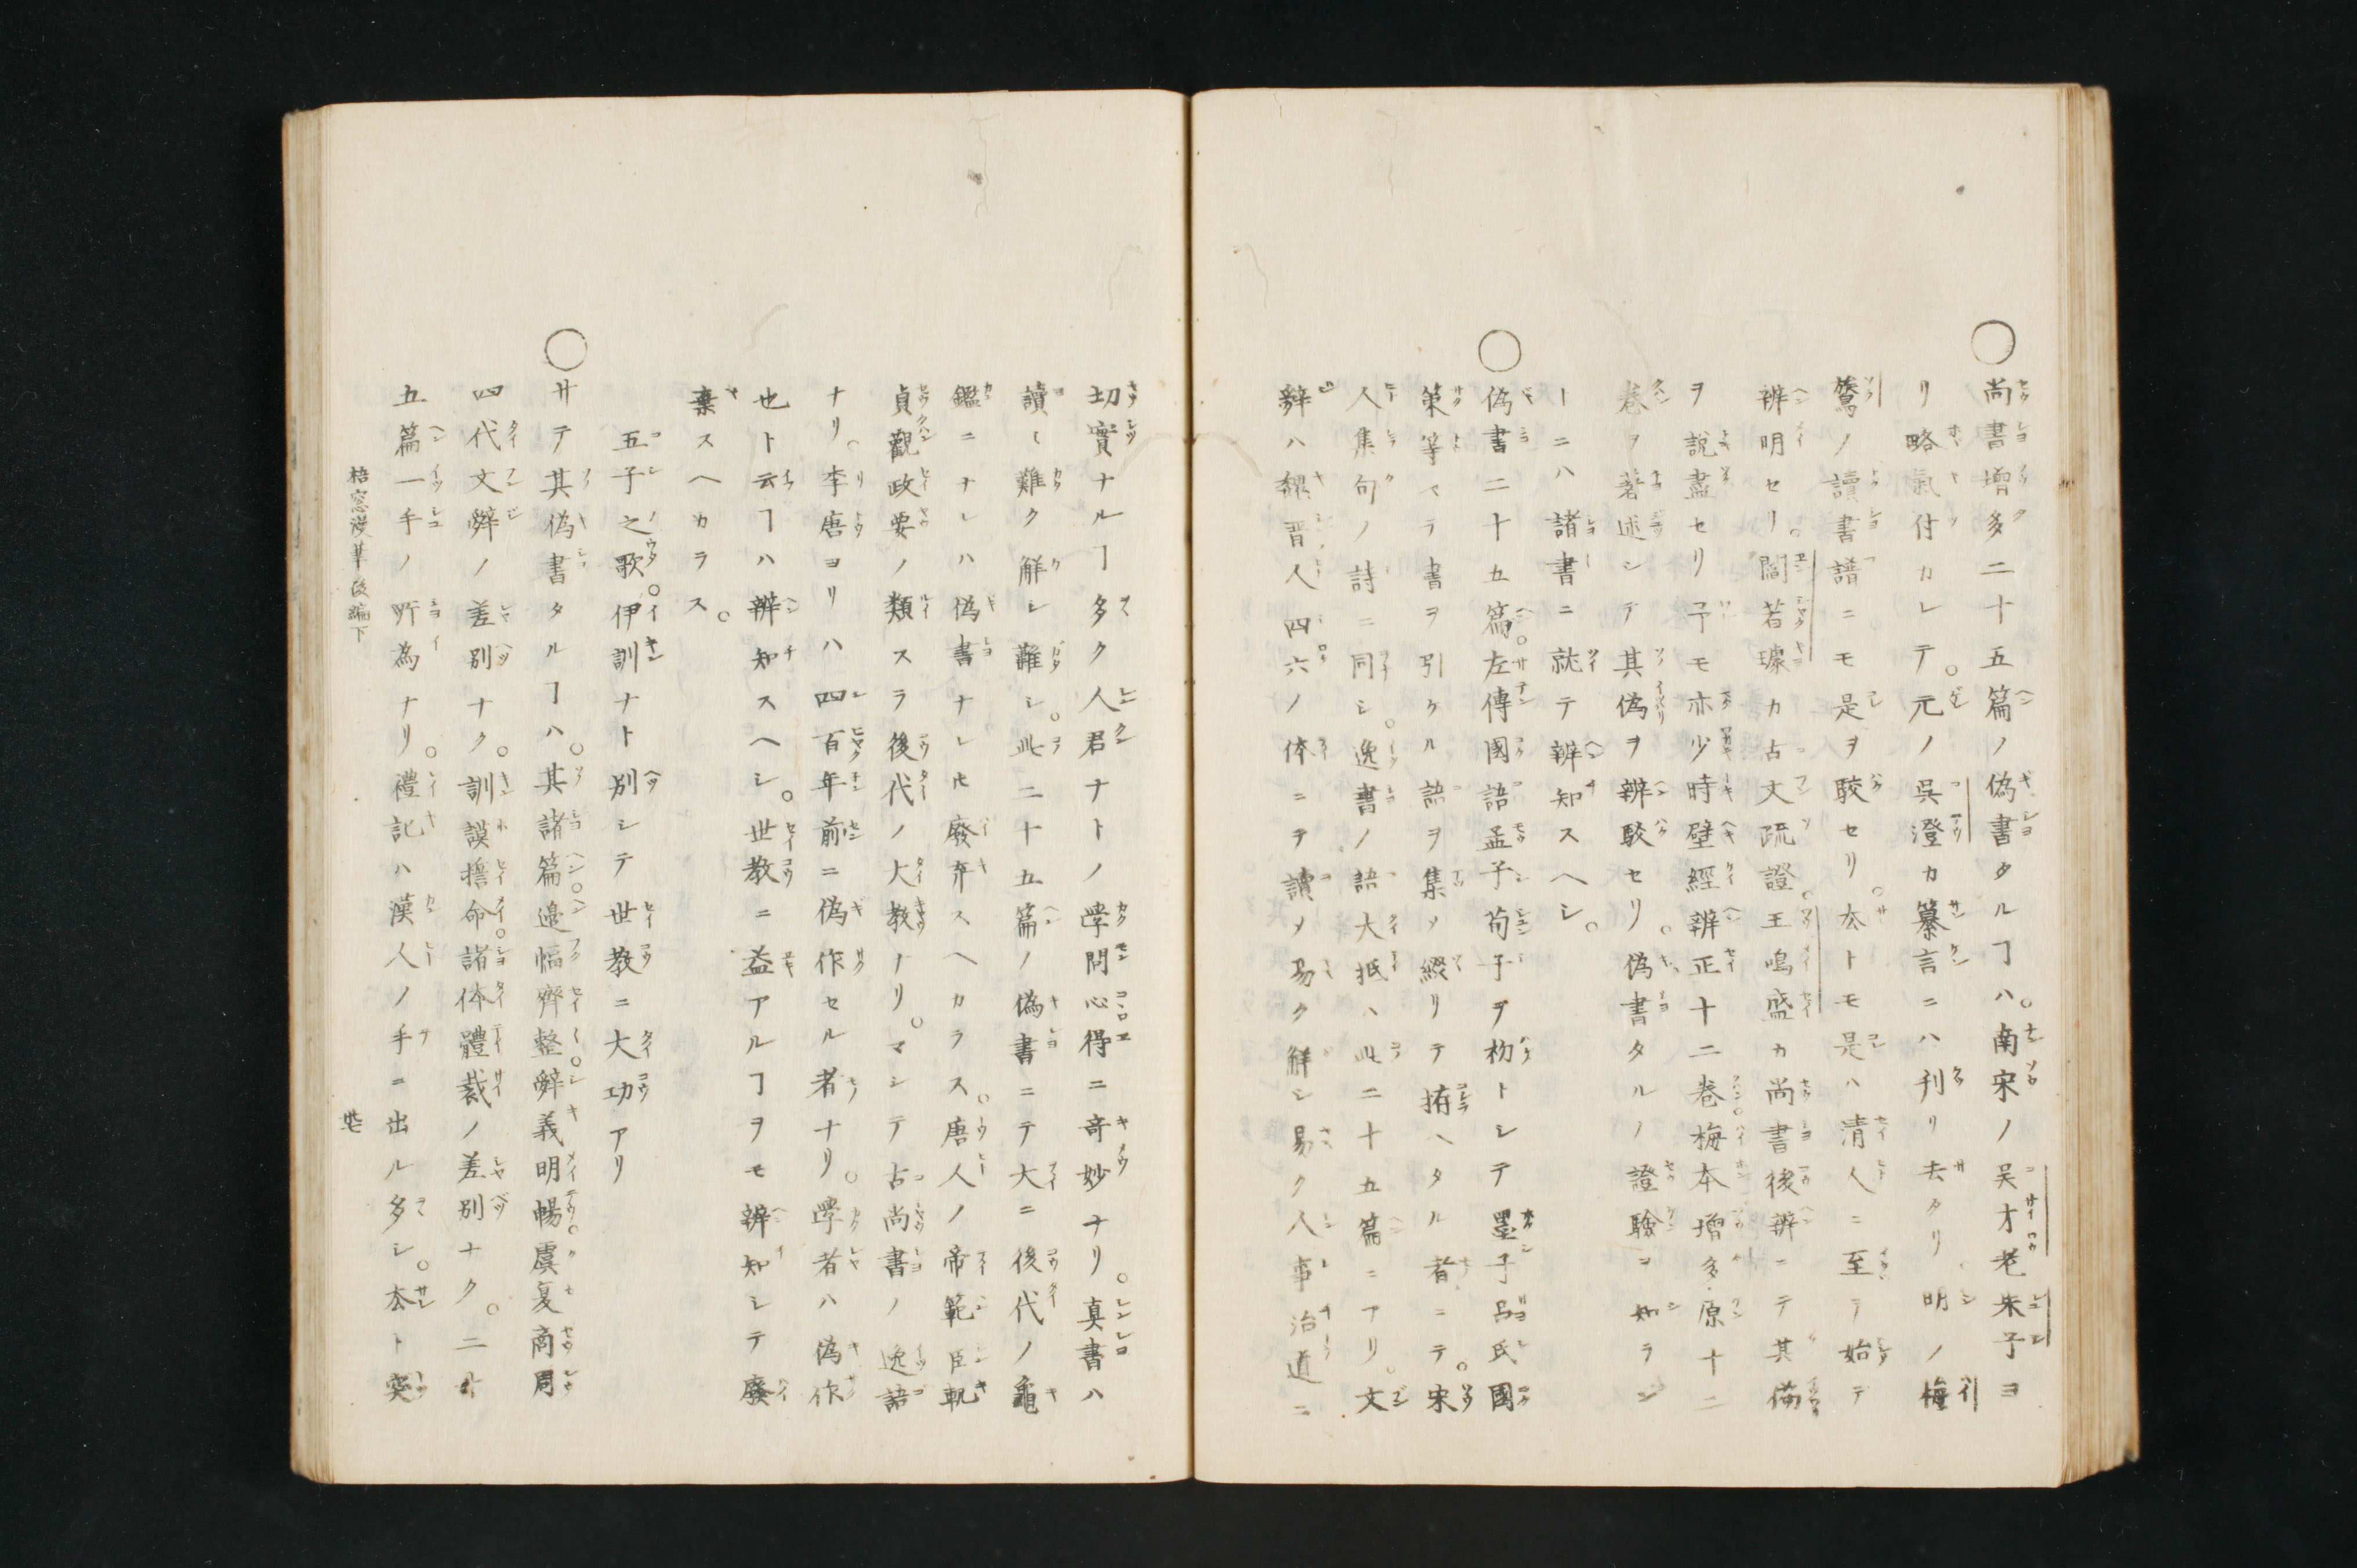 ○尚書増多二十五篇ノ偽書タルヿハ。南宋ノ吴才老朱子ヨ
リ略氣付カレテ。元ノ呉澄カ纂言ニハ刊リ去タリ。明ノ梅
鷟ノ讀書譜ニモ是ヲ駁セリ。夳トモ是ハ清人ニ至テ始テ
辨明セリ。閻若璩カ古文疏證。王鳴盛カ尚書後辨ニテ其偽
ヲ說盡セリ予モ亦少時壁經辨正十二卷梅本增多原十二
卷ヲ著述シテ其偽ヲ辨駁セリ。偽書タルノ證驗ヲ知ラン
ーニハ諸書ニ就テ辨知スヘシ。
○偽書二十五篇。左傳國語孟子荀子ヲ杒トシテ墨子呂氏國
策等マテ書ヲ引クル語ヲ集メ綴リテ拵ヘタル者ニテ。宋
人集句ノ詩ニ同シ。逸書ノ語大抵ハ此二十五篇ニアリ。文
辭ハ魏晋人四六ノ体ニテ讀メ易ク解シ易ク人事治道ニ
切實ナルヿ多ク人君ナトノ學問心得ニ奇妙ナリ。真書ハ
讀ミ難ク解シ難シ。此二十五篇ノ偽書ニテ大ニ後代ノ龜
鑑ニナレハ偽書ナレ𪜈廢弃スヘカラス。唐人ノ帝範臣軌
貞觀政要ノ類スラ後代ノ大教ナリ。マシテ古尚書ノ逸語
ナリ。李唐ヨリハ四百年前ニ偽作セル者ナリ。學者ハ偽作
也ト云ヿハ辨知スヘシ。世教ニ益アルヿヲモ辨知シテ廢
棄スヘカラス。
五子之歌。伊訓ナト別シテ世教ニ大功アリ
○サテ其偽書タルヿハ。其諸篇。邉幅齊整。辭義明暢。虞夏商周
四代文辭ノ差別ナク。訓謨誓命。諸体體裁ノ差別ナク。二十
五篇一手ノ所為ナリ。禮記ハ漢人ノ手ニ出ル多シ。夳ト突
梧窓漫筆後編下